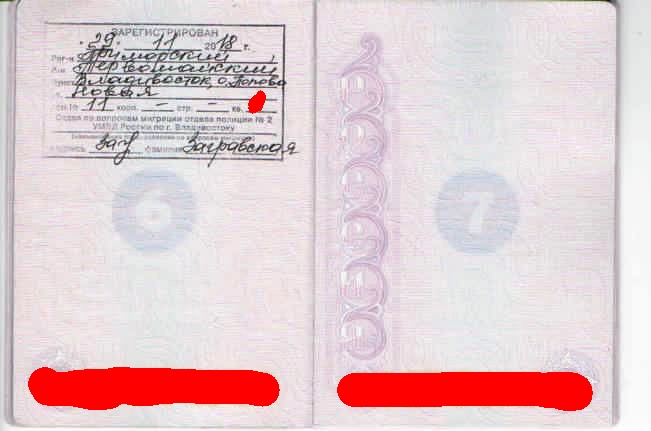 ЗАРЕГИСТРИРОВАН
29. 11 2018 г.
Рег-н Приморский
Р-н Первомайский
Пункт Владивосток, о. Попова
ул. Новая
дом № 11 корп. – стр. – кв.
Отдел по вопросам миграции отдела полиции № 2
УМВД России по г. Владивостоку
подпись фамилия Загравская
6
7